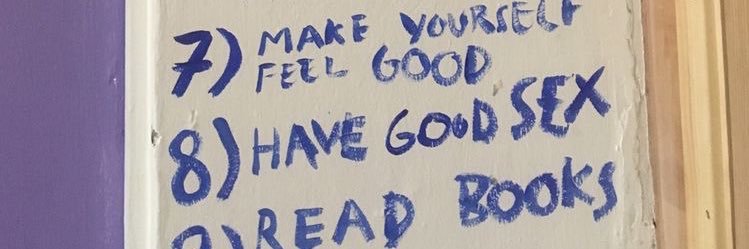 7) MAKE YOURSELF
FEEL GOOD
8) HAVE GOOD SEX
9) READ BOOKS